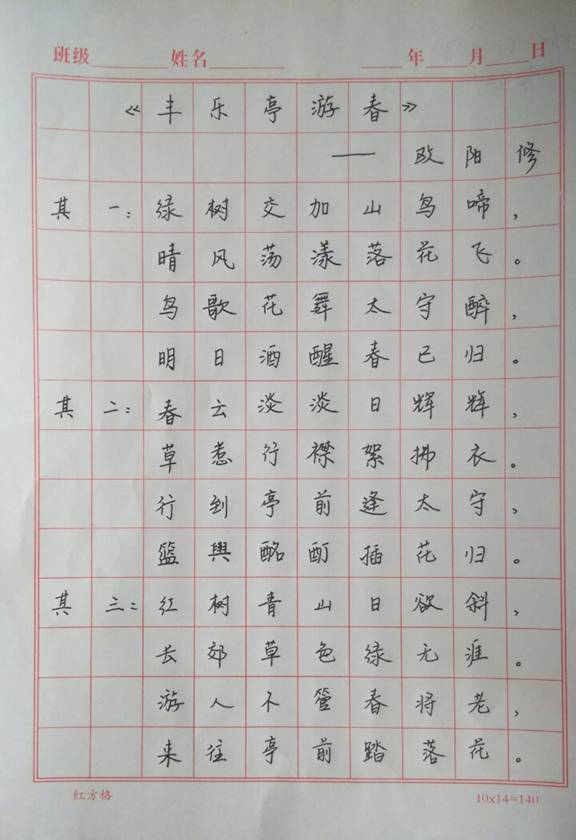 班级 姓名 年 月 日
《丰乐亭游春》
—— 欧阳修
其一：绿树交加山鸟啼，
晴风荡漾落花飞。
鸟歌花舞太守醉，
明日酒醒春已归。
其二：春云淡淡日辉辉，
草惹行襟絮拂衣。
行到亭前逢太守，
篮舆酩酊插花归。
其三：红树青山日欲斜，
长郊草色绿无涯。
游人不管春将老，
来往亭前踏落花。
红方格 10x14=140